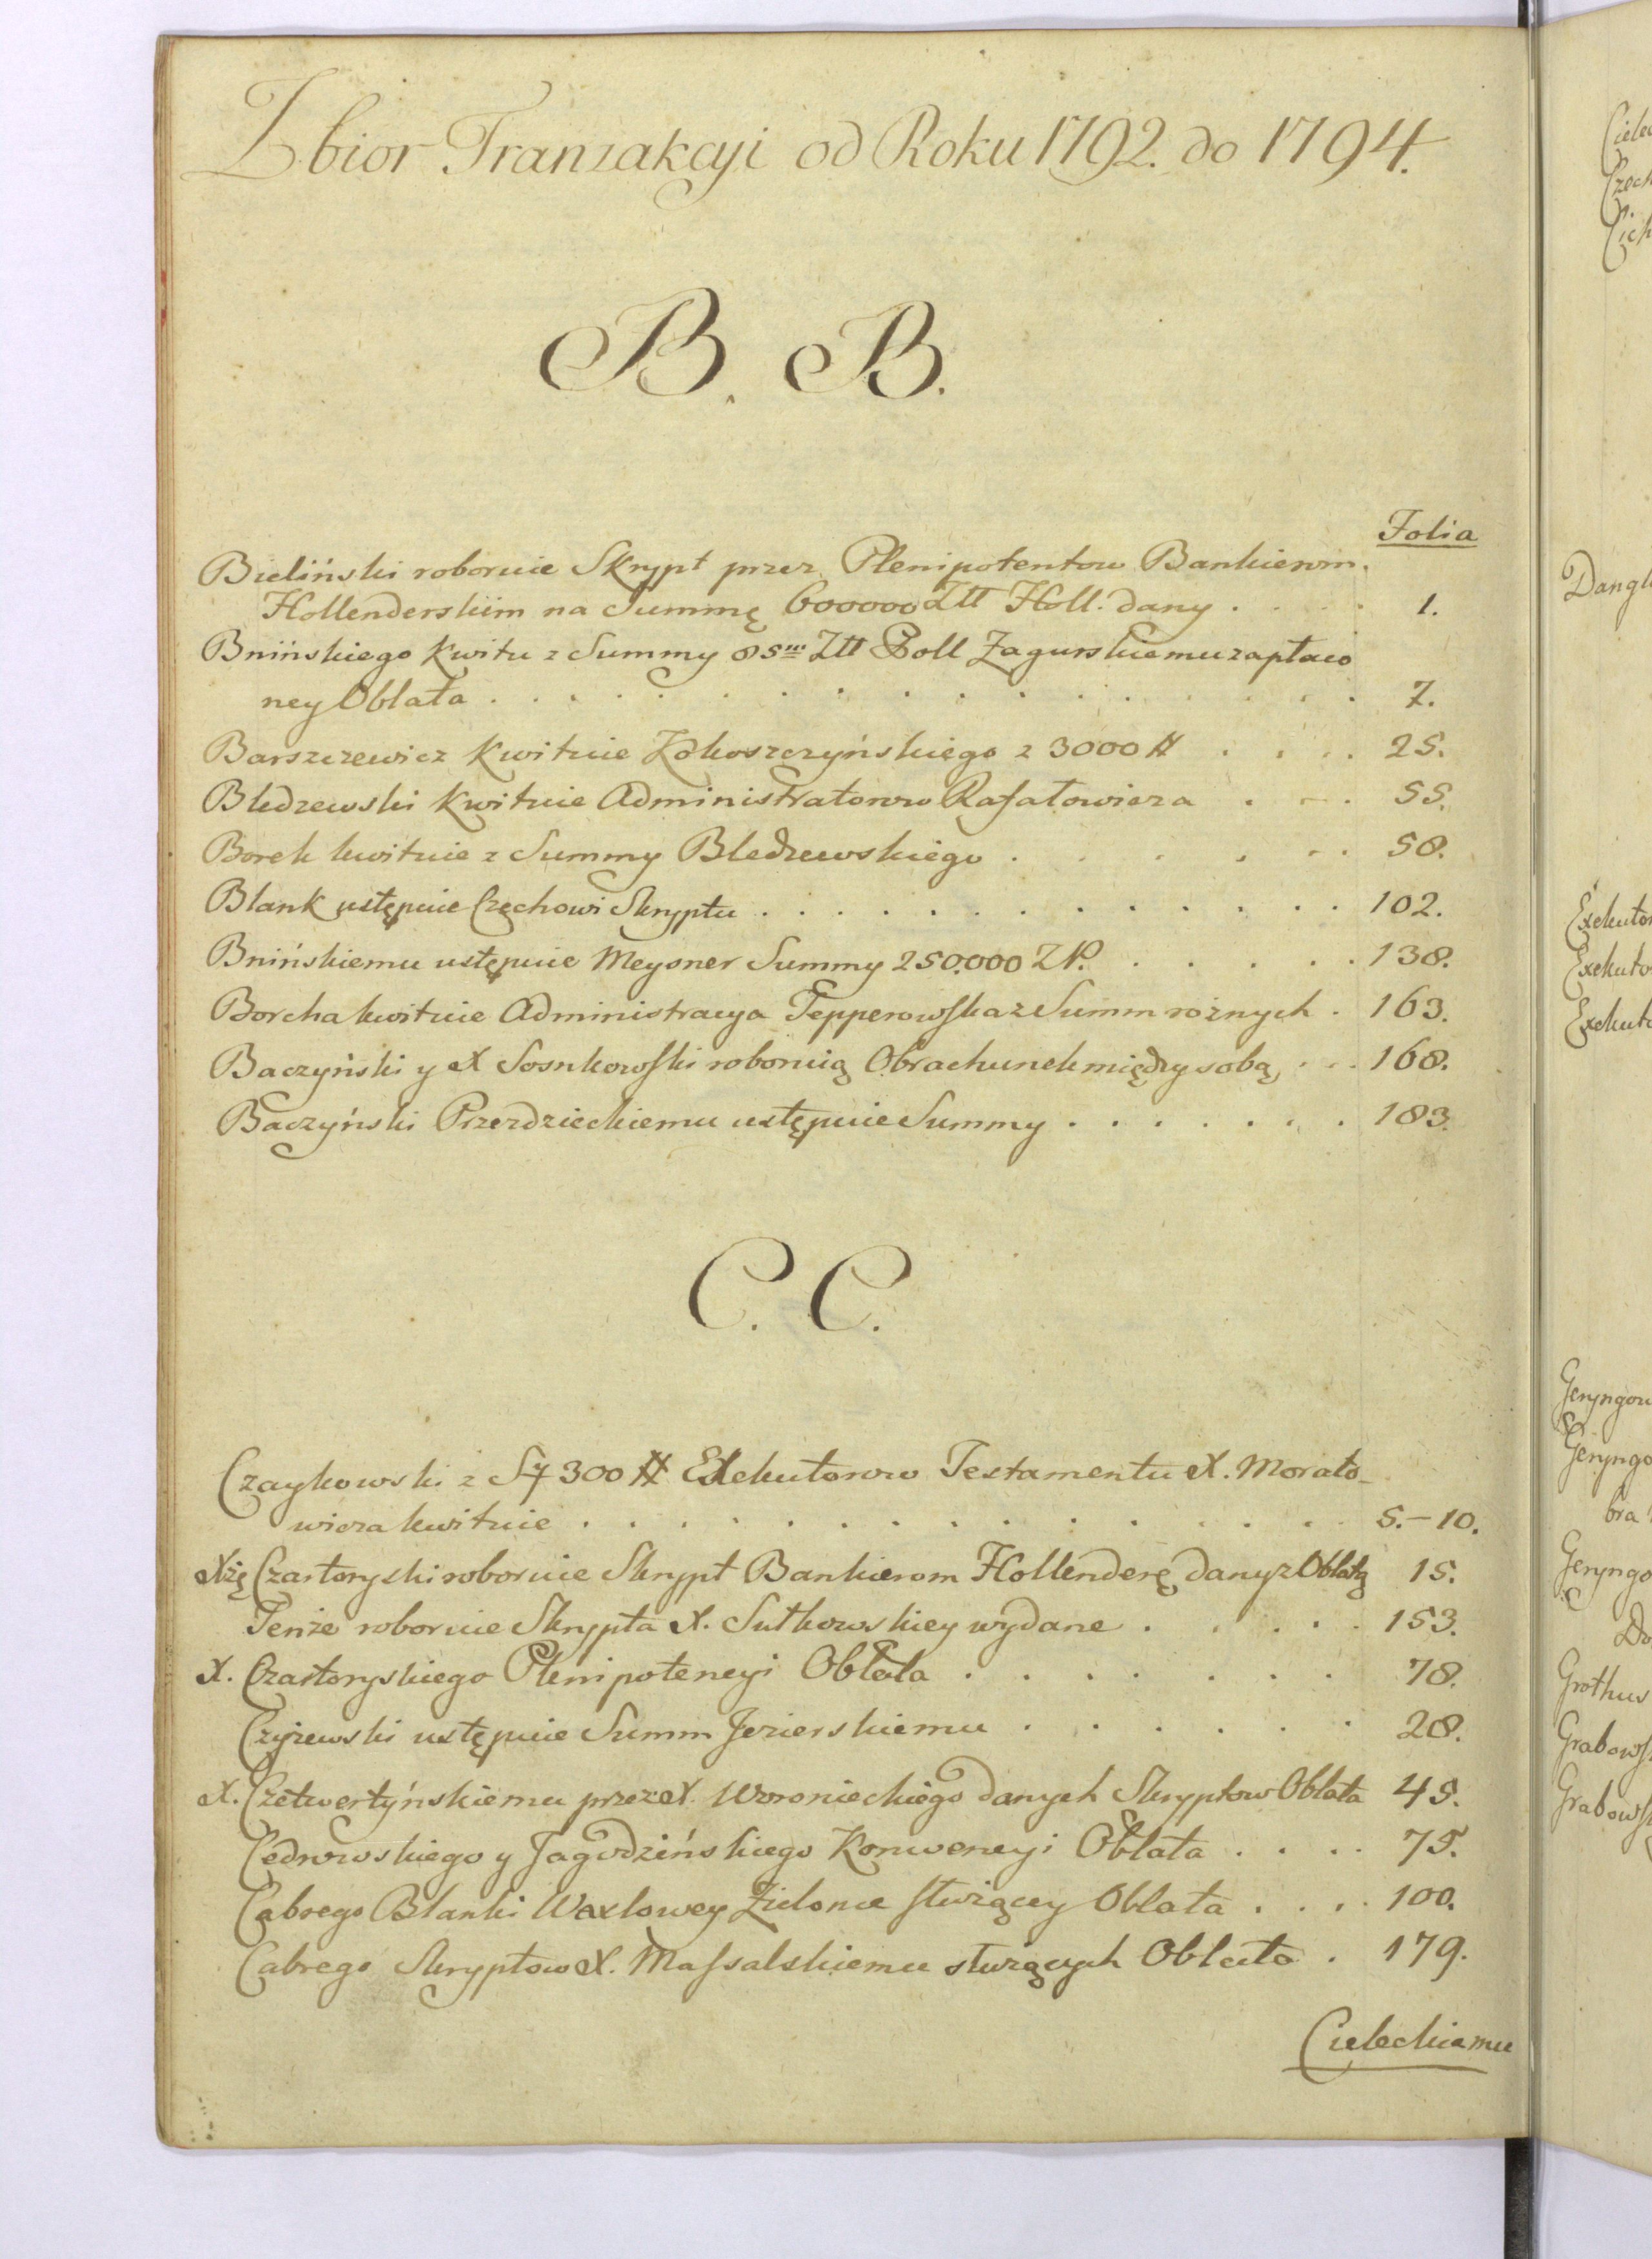 Zbior Tranzakcyi od Roku 1792. do 1794.
B. B.
Folia
Bieliński roboruie Skrypt przez Plenipotentow Bankierom
Hollenderskim na Summę 6000000 Ztt Holl. dany . . . . 1.
Bnińskiego Kwitu z Summy 85m Ztt Poll Zagurskiemu zapłaco
ney Oblata . . . . . . . . . . . . . . . 7.
Barszczewicz Kwituie Kokoszczyńskiego z 3000 # . . . . 25.
Bledzewski Kwituie Administratorow Rafałowicza . . . 55.
Borek kwituie z Summy Bledzewskiego . . . . . . 58.
Blank ustępuie Czechowi Skryptu . . . . . . . . . . . . 102.
Bnińskiemu ustępuie Meysner Summy 250.000 ZP. . . . . . 138.
Borcha kwituie Administracya Tepperowska z Summ rożnych . 163.
Baczyński y X Sosnkowski roboruią Obrachunek między sobą . . . 168.
Baczyński Przezdzieckiemu ustępuie Summy . . . . . . . 183.
C. C.
Czaykowski z Sy 300 # Exekutorow Testamentu X. Morato-
wicza kwituie . . . . . . . . . . . . . . 5.-10.
Xżę Czartoryski roboruie Skrypt Bankierom Hollenderę dany z Oblatą 15.
Tenże roboruie Skrypta X. Sułkowskiey wydane . . . . . 153.
X. Czartoryskiego Plenipotencyi Oblata . . . . . . . 78.
Czyżewski ustępuie Summ Jezierskiemu . . . . . . 28.
X. Czetwertyńskiemu przez X. Woronieckiego danych Skryptow Oblata 45.
Cedrowskiego y Jagodzińskiego Konwencyi Oblata . . . . 75.
Cabrego Blanki Wexlowey Zielonce służącey Oblata . . . . 100.
Cabrego Skryptow X. Massalskiemu służących Oblata . 179.
Cieleckiemu